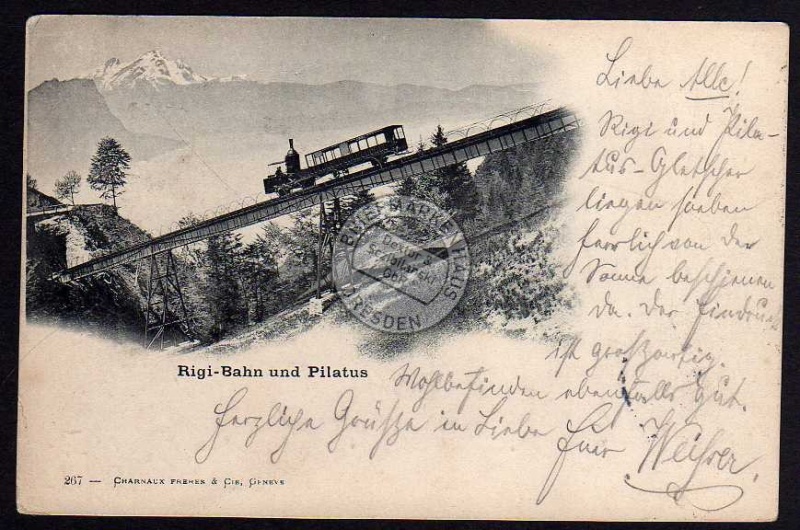 Liebe Alle!
Rigi und Pila-
tus-Gletscher
liegen soeben
herrlich von der
Sonne beschienen
da. Der Eindruck
ist großartig.
Wohlbefinden ebenfalls gut.
Herzliche Grüße in Liebe
Euer
Rigi-Bahn und Pilatus
267 — CHARNAUX FRÈRES & CIE, GENÈVE
BRIEFMARKENHAUS
Dexler &
Schimanski
GbR
DRESDEN